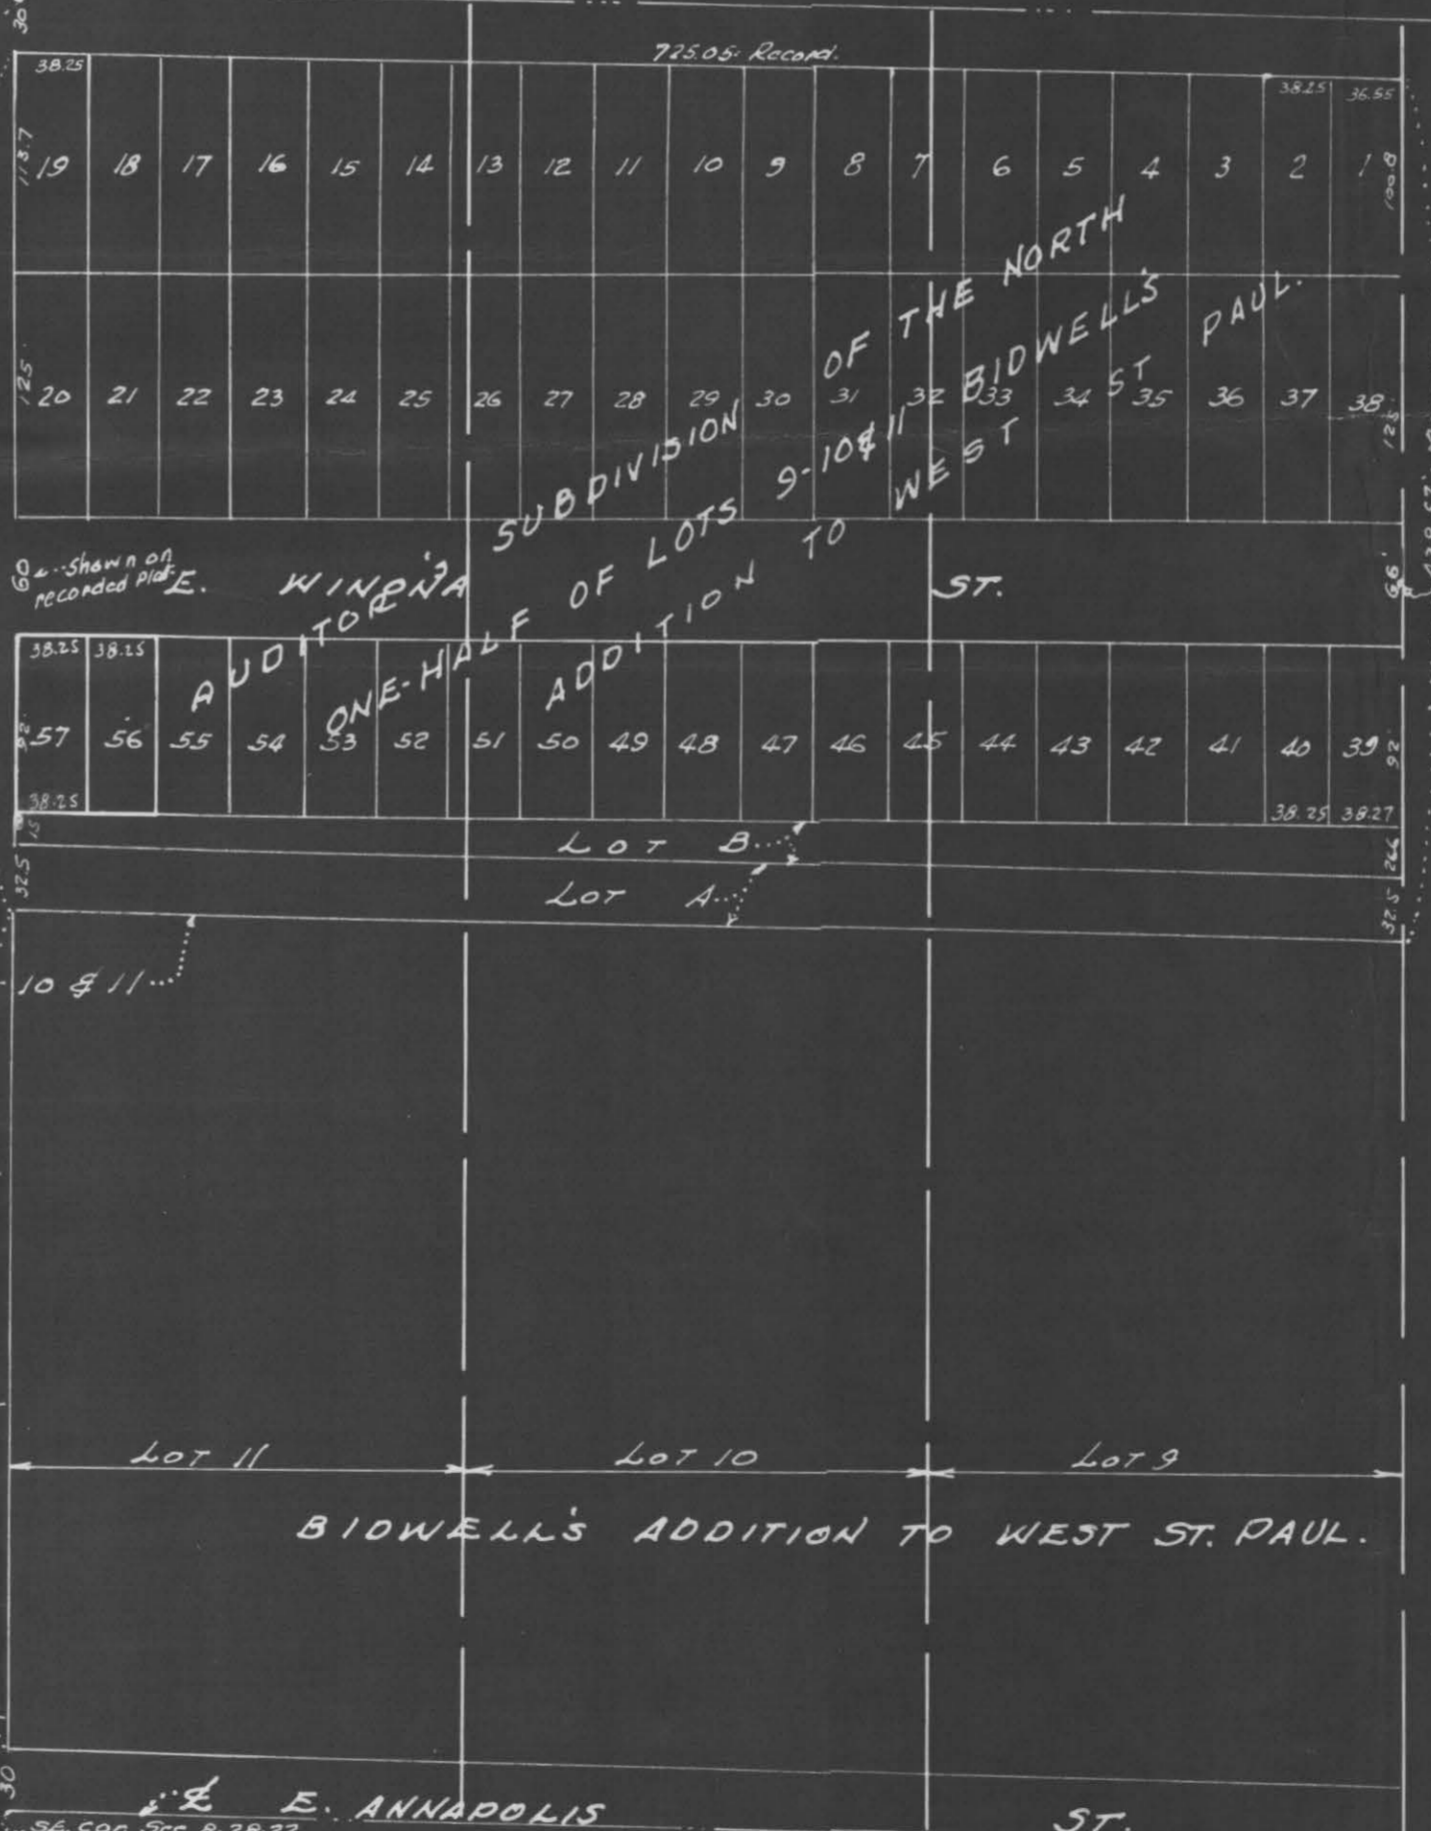 30
725.05 Record.
38.25 38.25 36.55
113.7 19 18 17 16 15 14 13 12 11 10 9 8 7 6 5 4 3 2 1 100.8
125 20 21 22 23 24 25 26 27 28 29 30 31 32 33 34 35 36 37 38 125
AUDITOR'S SUBDIVISION OF THE NORTH
ONE-HALF OF LOTS 9-10 & 11 BIDWELL'S
ADDITION TO WEST ST PAUL.
60 Shown on
recorded Plat
E. WINONA ST. 66'
38.25 38.25
92 57 56 55 54 53 52 51 50 49 48 47 46 45 44 43 42 41 40 39 92
38.25 38.25 38.27
15 LOT B 26.6
32.5 LOT A 32.5
10 & 11
LOT 11 LOT 10 LOT 9
BIDWELL'S ADDITION TO WEST ST. PAUL.
30
℄ E. ANNAPOLIS ST.
SE. COR. SEC. 8.28.22